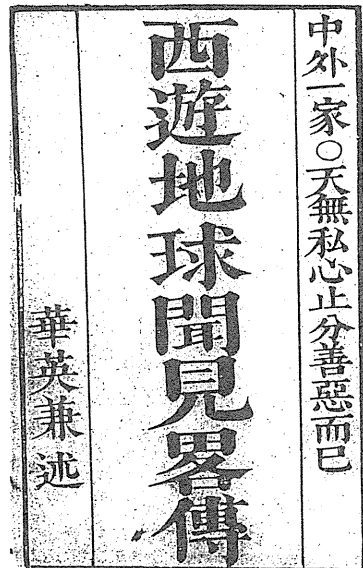 中外一家○天無私心止分善惡而已
西遊地球聞見畧傳
華英兼述